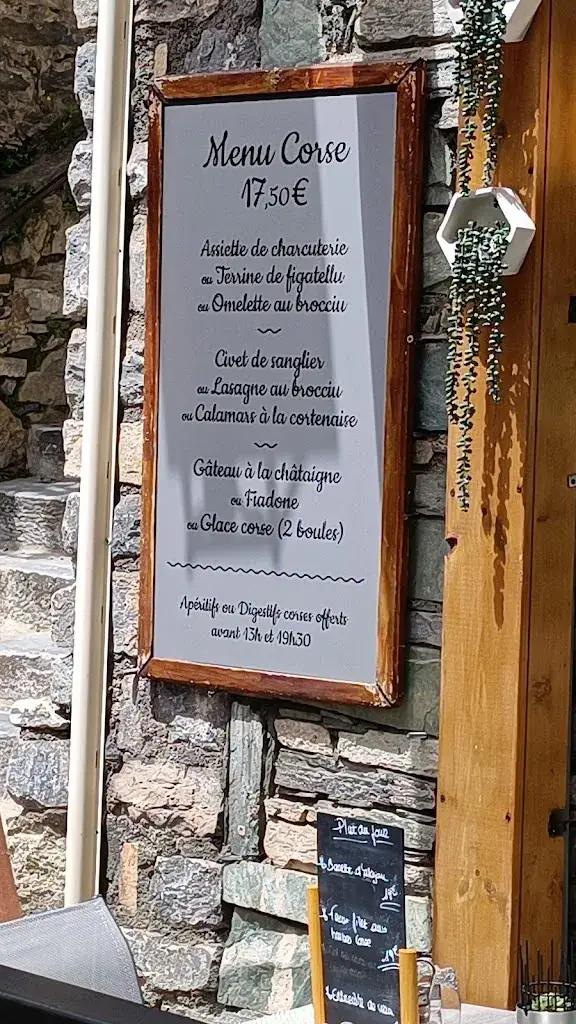 Menu Corse
17,50€
Assiette de charcuterie
ou Terrine de figatellu
ou Omelette au brocciu
Civet de sanglier
ou Lasagne au brocciu
ou Calamars à la cortenaise
Gâteau à la châtaigne
ou Fiadone
ou Glace corse (2 boules)
Apéritifs ou Digestifs corses offerts
avant 13h et 19h30
Plat du jour